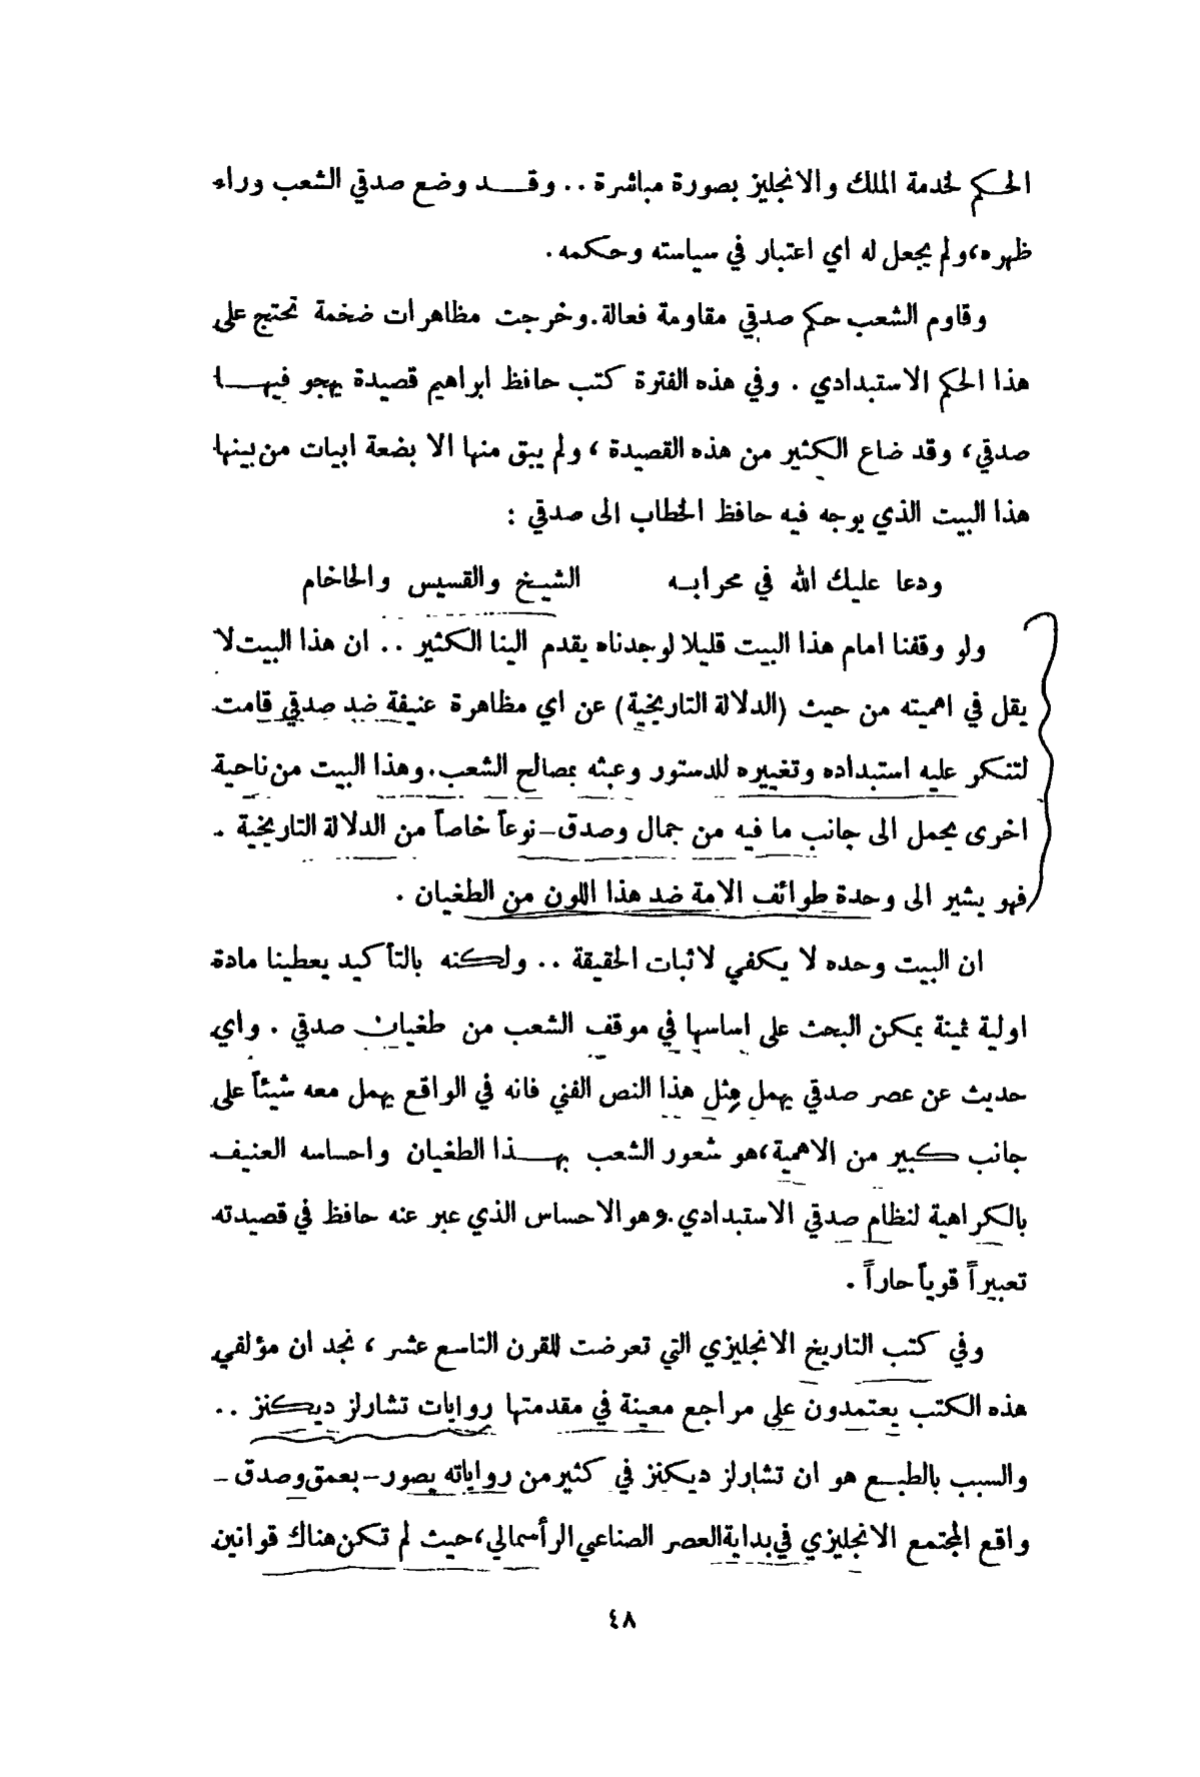 الحكم لخدمة الملك والانجليز بصورة مباشرة .. وقد وضع صدقي الشعب وراء
ظهره،ولم يجعل له اي اعتبار في سياسته وحكمه .
وقاوم الشعب حكم صدقي مقاومة فعالة.وخرجت مظاهرات ضخمة تحتج على
هذا الحكم الاستبدادي . وفي هذه الفترة كتب حافظ ابراهيم قصيدة يهجو فيها
صدقي، وقد ضاع الكثير من هذه القصيدة ، ولم يبق منها الا بضعة ابيات من بينها
هذا البيت الذي يوجه فيه حافظ الخطاب الى صدقي :
ودعا عليك الله في محرابه الشيخ والقسيس والحاخام
ولو وقفنا امام هذا البيت قليلا لوجدناه يقدم الينا الكثير .. ان هذا البيت لا
يقل في اهميته من حيث (الدلالة التاريخية) عن اي مظاهرة عنيفة ضد صدقي قامت
لتنكر عليه استبداده وتغييره للدستور وعبثه بمصالح الشعب.وهذا البيت من ناحية
اخرى يحمل الى جانب ما فيه من جمال وصدق-نوعاً خاصاً من الدلالة التاريخية .
فهو يشير الى وحدة طوائف الامة ضد هذا اللون من الطغيان .
ان البيت وحده لا يكفي لاثبات الحقيقة .. ولكنه بالتأكيد يعطينا مادة
اولية ثمينة يمكن البحث على اساسها في موقف الشعب من طغيان صدقي . واي
حديث عن عصر صدقي يهمل مثل هذا النص الفني فانه في الواقع يهمل معه شيئاً على
جانب كبير من الاهمية،هو شعور الشعب بهذا الطغيان واحساسه العنيف
بالكراهية لنظام صدقي الاستبدادي.وهو الاحساس الذي عبر عنه حافظ في قصيدته
تعبيراً قوياً حاراً .
وفي كتب التاريخ الانجليزي التي تعرضت للقرن التاسع عشر ، نجد ان مؤلفي
هذه الكتب يعتمدون على مراجع معينة في مقدمتها روايات تشارلز ديكنز ..
والسبب بالطبع هو ان تشارلز ديكنز في كثير من رواياته يصور-بعمق وصدق -
واقع المجتمع الانجليزي في بداية العصر الصناعي الرأسمالي،حيث لم تكن هناك قوانين
٤٨